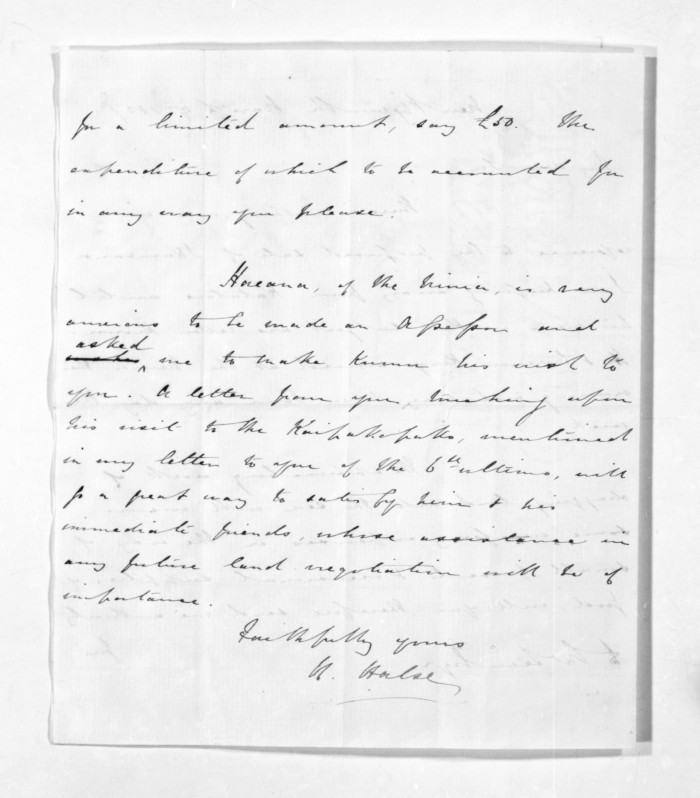 for a limited amount, say £50. The
expenditure of which to be accounted for
in any way you please.
Haeana, of the Ninia, is very
anxious to be made an Assessor and
asked me to make known his wish to
you. A letter from you, touching upon
his visit to the Kaipakopako, mentioned
in my letter to you of the 6th ultimo, will
go a great way to satisfy him & his
immediate friends, whose assistance in
any future land negotiation will be of
importance.
Faithfully yours
H. Halse